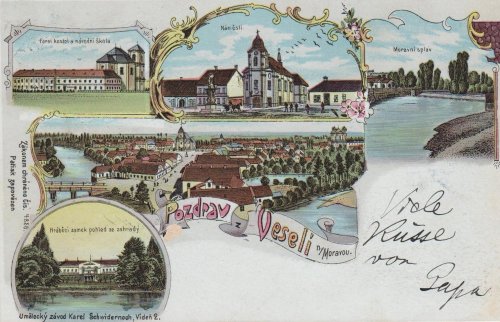 Farní kostel a národní škola
Náměstí
Moravní splav
Pozdrav
z
Veselí n/Moravou.
Hraběcí zámek pohled ze zahrady.
Umělecký závod Karel Schwidernoch, Vídeň 2.
Zákonem chráněno čís.
Patisk zapovězen
Viele
Küsse
von
Papa